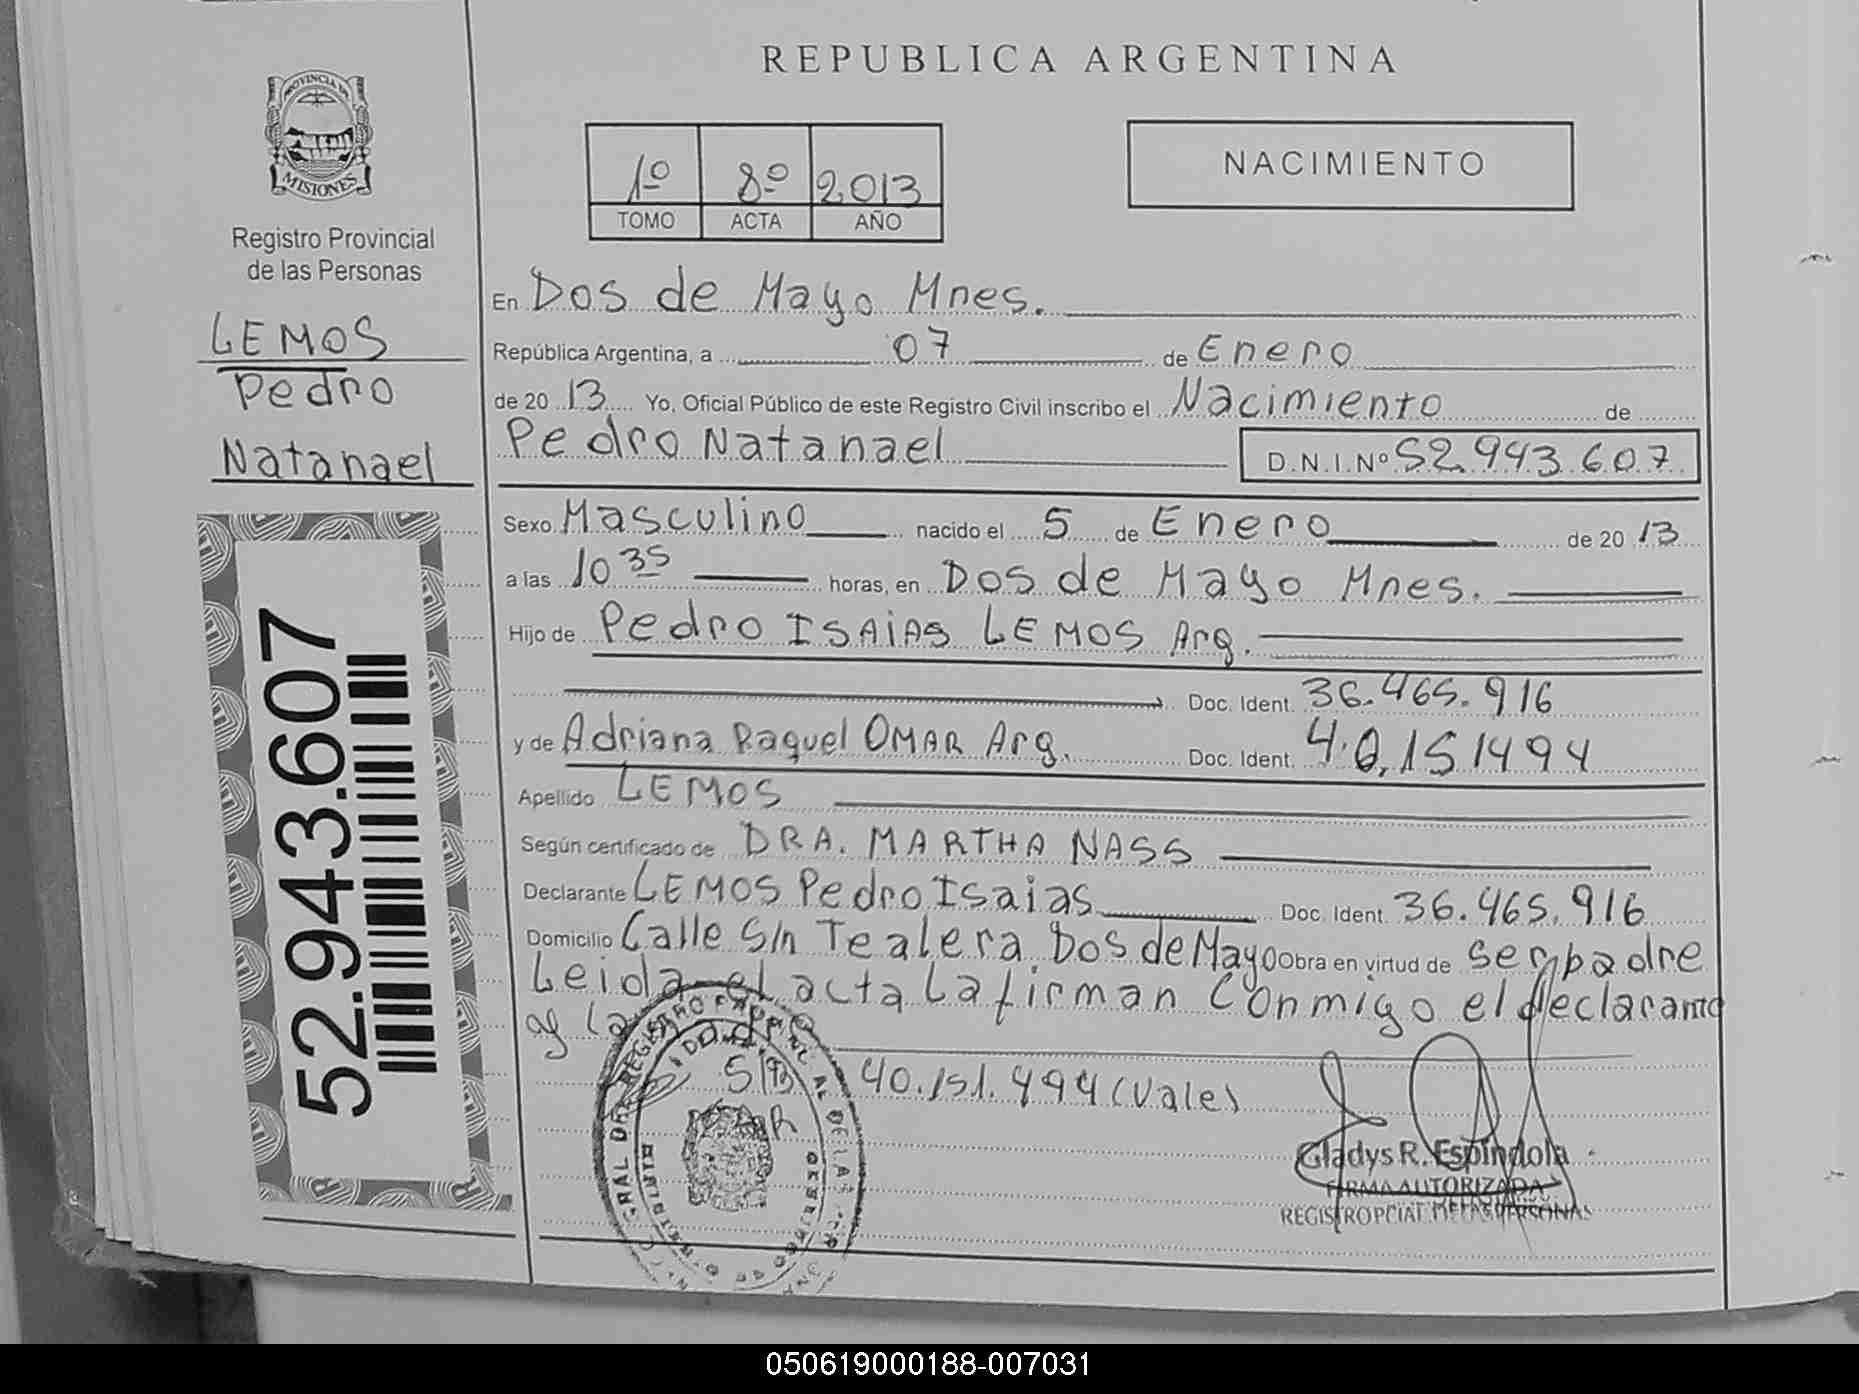 REPUBLICA ARGENTINA
PROVINCIA DE
MISIONES
Registro Provincial
de las Personas
LEMOS
Pedro
Natanael
52.943.607
1º 8º 2013
TOMO ACTA AÑO
NACIMIENTO
En Dos de Mayo Mnes.
República Argentina, a 07 de Enero
de 20 13 Yo, Oficial Público de este Registro Civil inscribo el Nacimiento de
Pedro Natanael D.N.I.Nº 52.943.607
Sexo Masculino nacido el 5 de Enero de 20 13
a las 10 35 horas, en Dos de Mayo Mnes.
Hijo de Pedro ISAIAS LEMOS Arg.
Doc. Ident. 36.465.916
y de Adriana Raquel OMAR Arg. Doc. Ident. 40.151494
Apellido LEMOS
Según certificado de DRA. MARTHA NASS
Declarante LEMOS Pedro Isaias Doc. Ident. 36.465.916
Domicilio Calle S/n Tealera Dos de Mayo Obra en virtud de ser padre
Leida el acta la firman conmigo el declarante
y la
40.151.494 (Vale)
Gladys R. Espindola
FIRMA AUTORIZADA
REGISTRO PCIAL. DE LAS PERSONAS
050619000188-007031